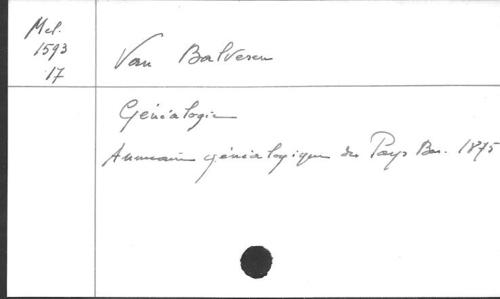 Mel.
1593
17
Van Balveren
Généalogie
Annuaire généalogique des Pays Bas. 1875